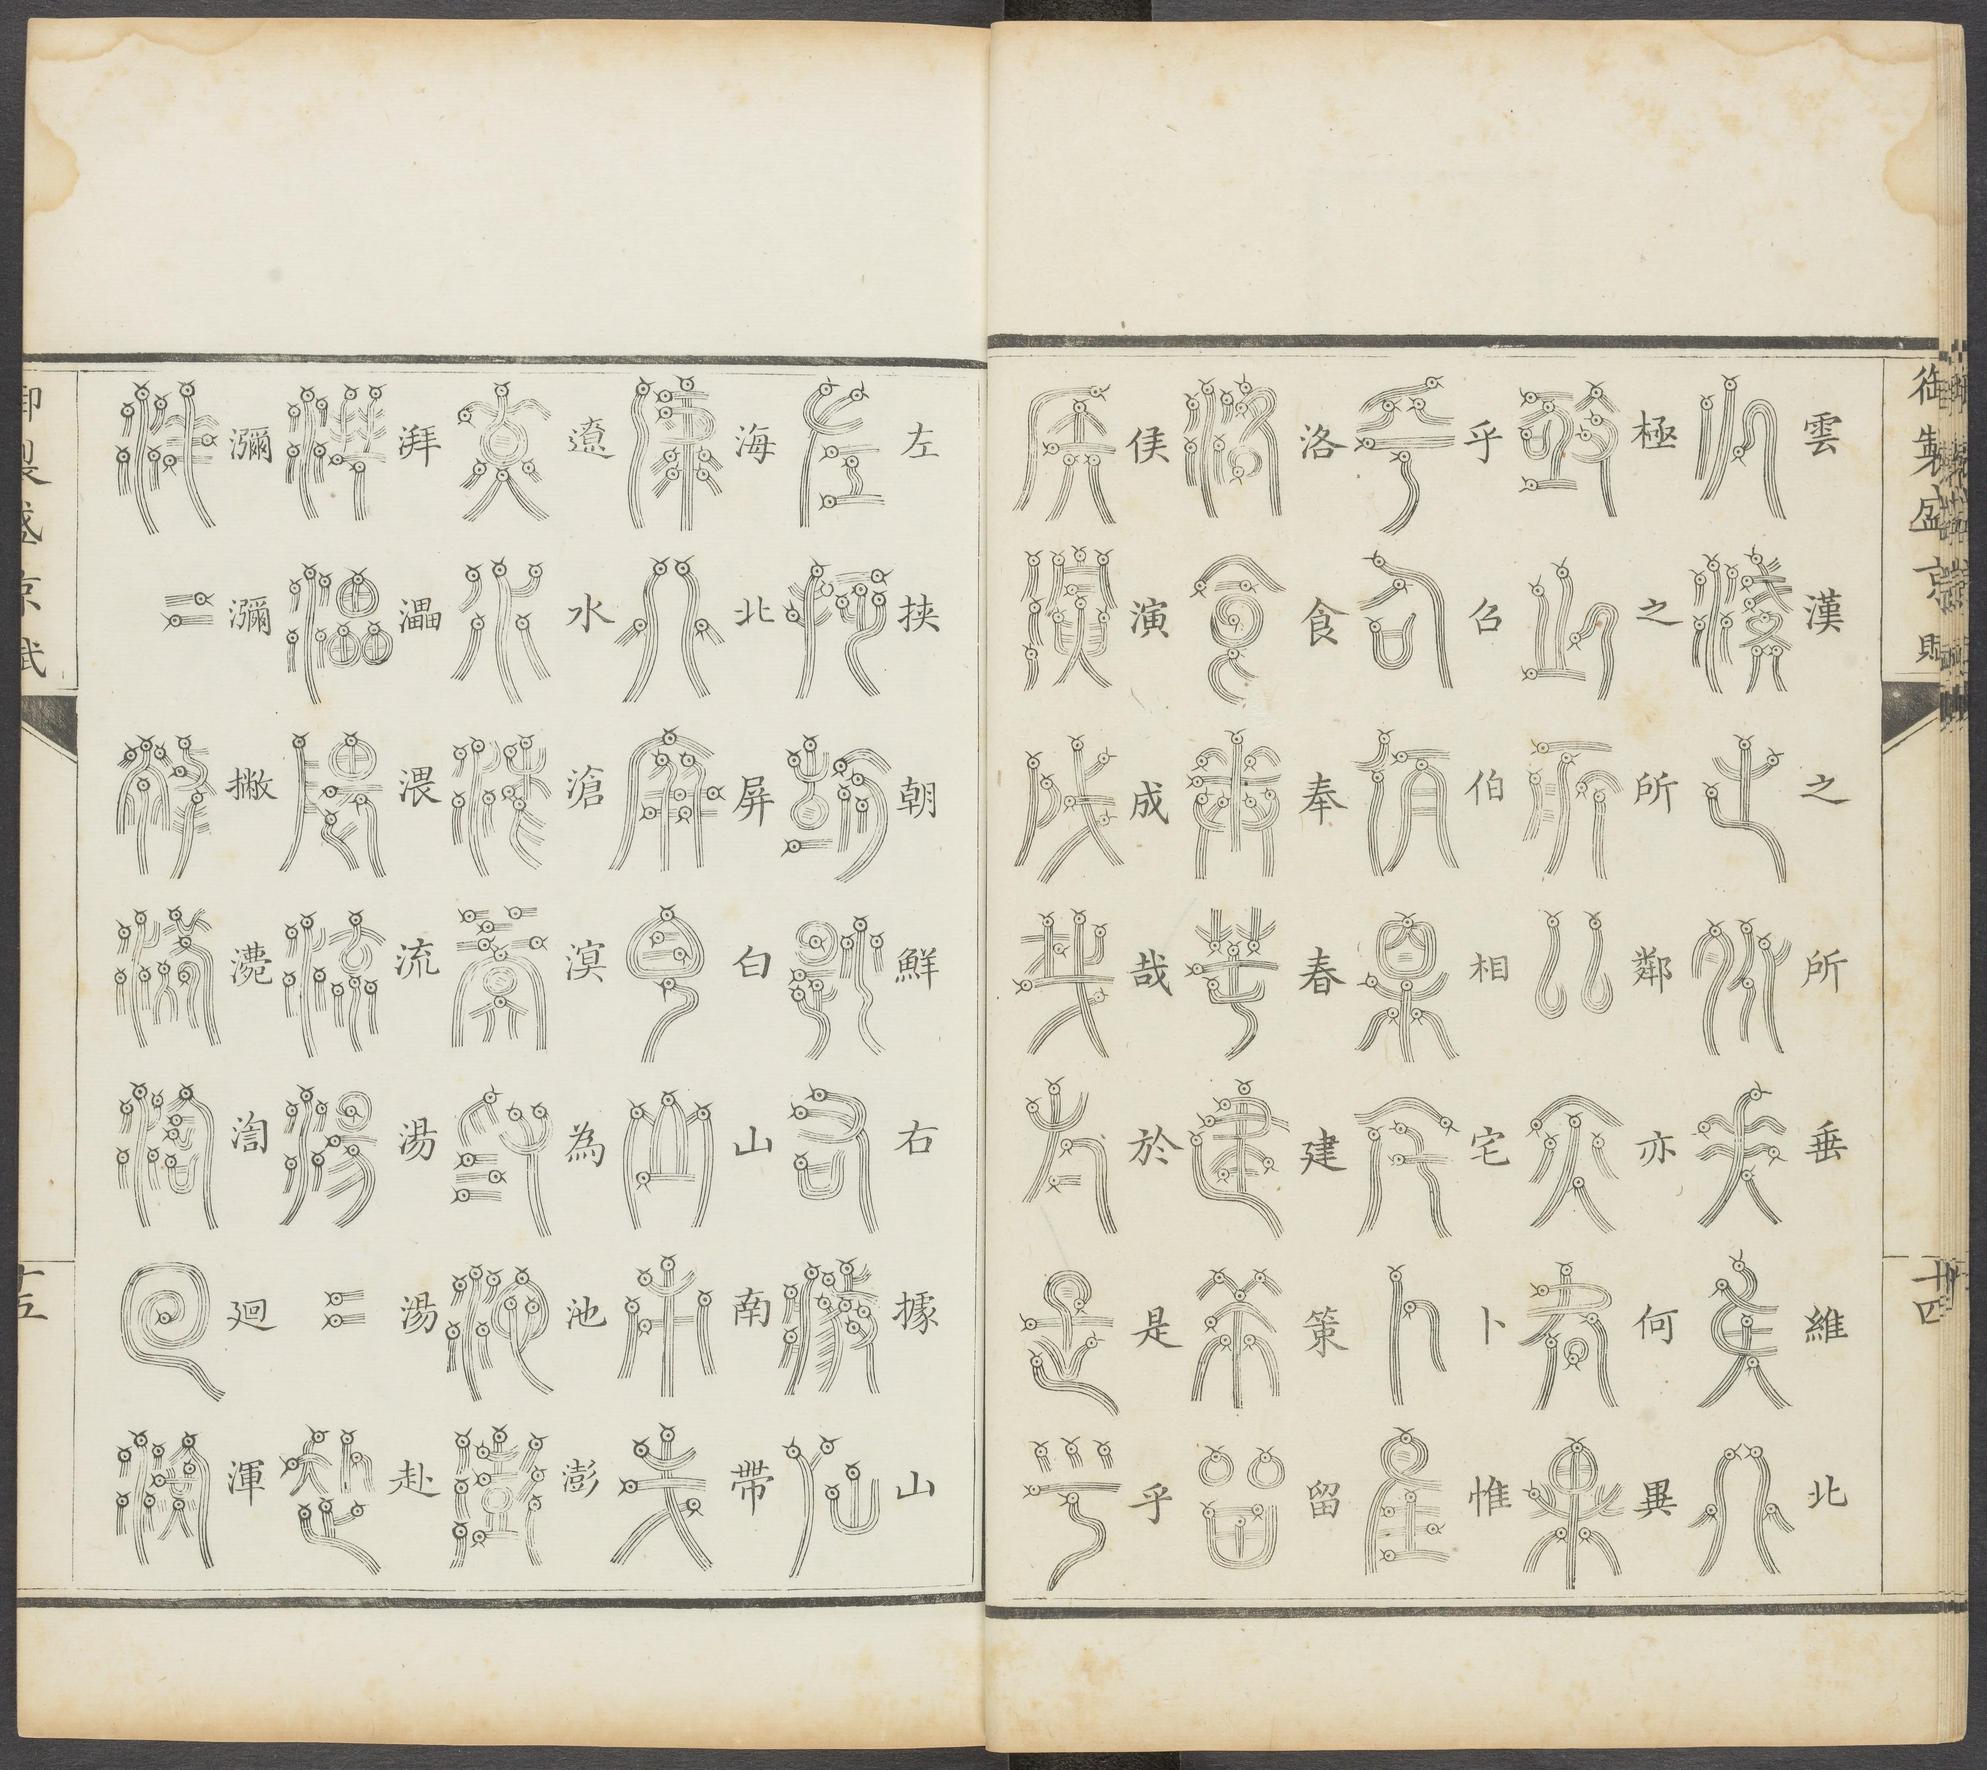 御製盛京賦
十四
雲漢之所垂維北
極之所鄰亦何異
乎召伯相宅卜惟
洛食奉春建策留
侯演成哉於是乎
左挾朝鮮右據山
海北屏白山南帶
遼水滄溟為池澎
湃㵽渨流湯湯赴
瀰瀰撇漉渹廻渾
御製盛京賦
十五